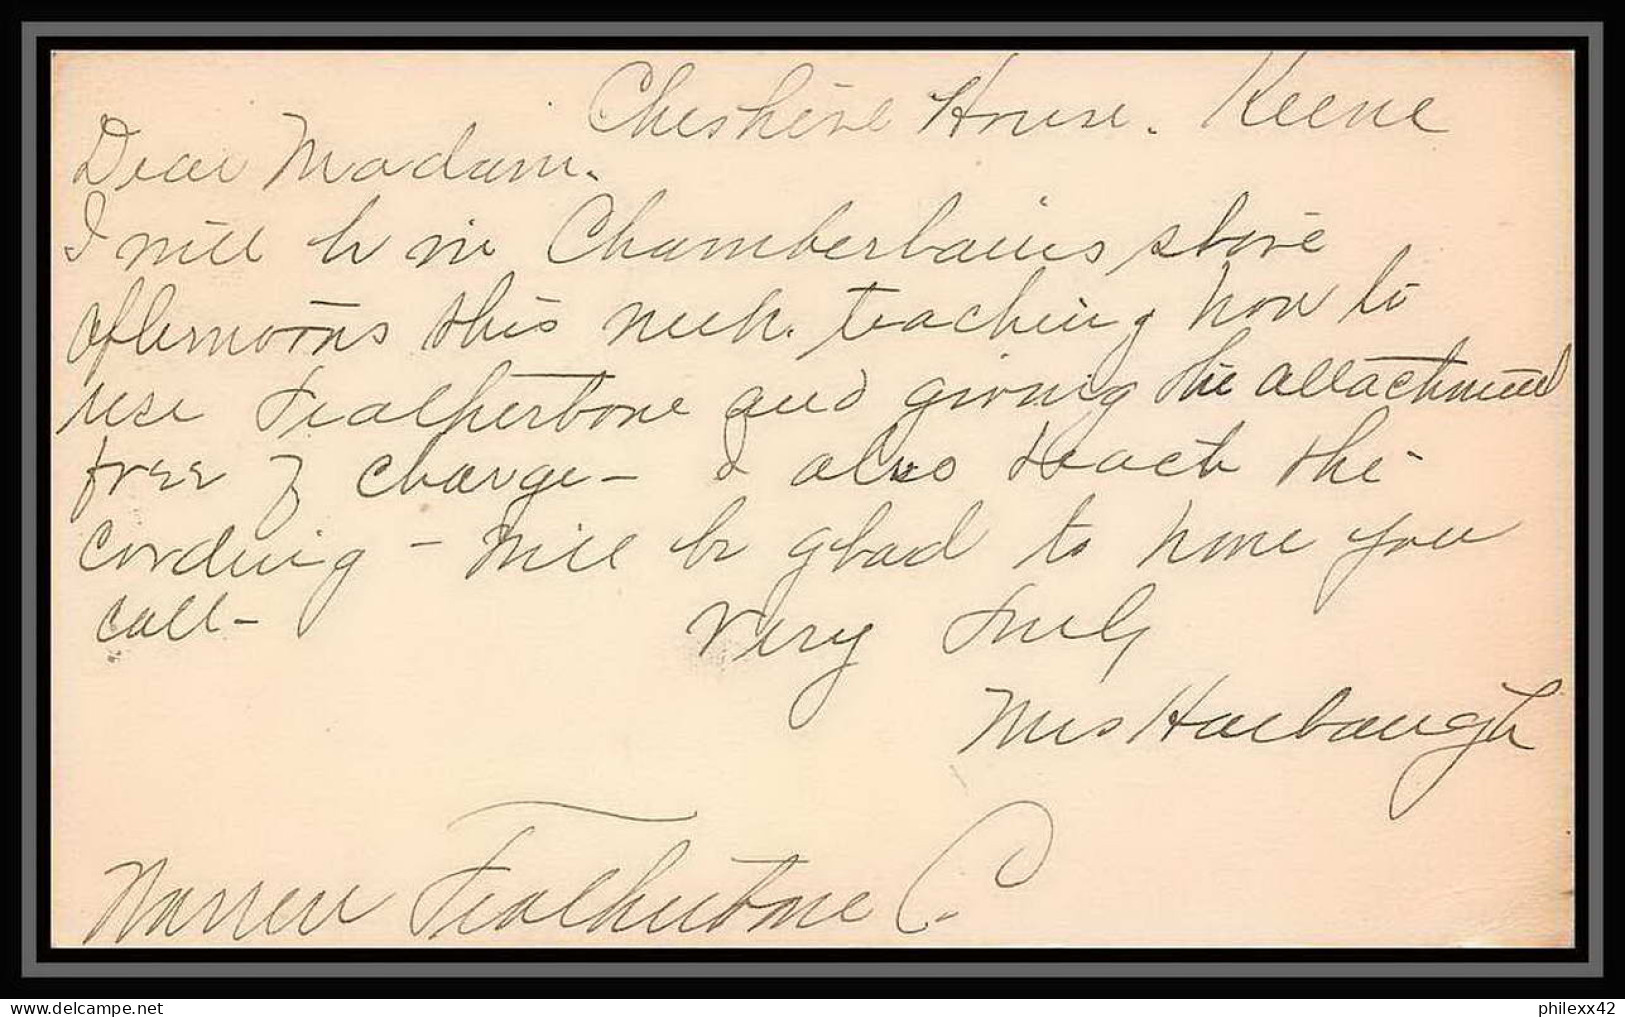 Cheshire House. Keene
Dear Madam.
I will be in Chamberlains store
afternoons this week. teaching how to
use Featherbone and giving the attachment
free of charge - I also teach the
Cording - Will be glad to have you
call -
Very Truly
Mrs Harbaugh
Warren Featherbone Co.
delcampe.net
philexx42